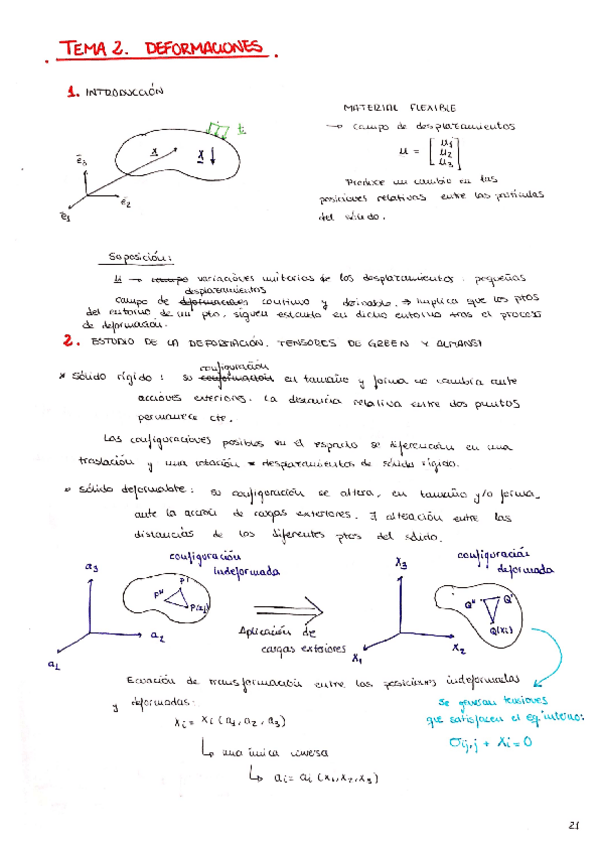 TEMA 2. DEFORMACIONES.
1. INTRODUCCIÓN
t
x
X
e3
e2
e1
MATERIAL FLEXIBLE
→ campo de desplazamientos
u = [u1 u2 u3]
Produce un cambio en las
posiciones relativas entre las partículas
del sólido.
Suposición:
u → campo variaciones unitarias de los desplazamientos. pequeñas
desplazamientos
campo de deformaciones continuo y derivable. ⇒ implica que los ptos
del entorno de un pto, siguen estando en dicho entorno tras el proceso
de deformación.
2. ESTUDIO DE LA DEFORMACIÓN. TENSORES DE GREEN Y ALMANSI
configuración
* sólido rígido: su conformación en tamaño y forma no cambia ante
acciones exteriores. La distancia relativa entre dos puntos
permanece cte.
Las configuraciones posibles en el espacio se diferencian en una
traslación y una rotación = desplazamientos de sólido rígido.
* sólido deformable: su configuración se altera, en tamaño y/o forma,
ante la acción de cargas exteriores. ∃ alteración entre las
distancias de los diferentes ptos del sólido.
configuración
indeformada
a3
P'
P"
P(ai)
a2
a1
Aplicación de
cargas exteriores
configuración
deformada
X3
Q"
Q'
Q(xi)
X2
X1
Ecuación de transformación entre las posiciones indeformadas
y deformadas:
xi = xi (a1, a2, a3)
↳ una única inversa
↳ ai = ai (x1, x2, x3)
Se generan tensiones
que satisfacen el eq. interno:
σij,j + Xi = 0
21